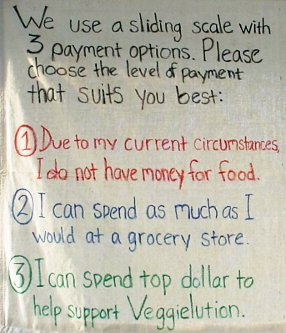 We use a sliding scale with
3 payment options. Please
choose the level of payment
that suits you best:
1 Due to my current circumstances,
I do not have money for food.
2 I can spend as much as I
would at a grocery store.
3 I can spend top dollar to
help support Veggielution.